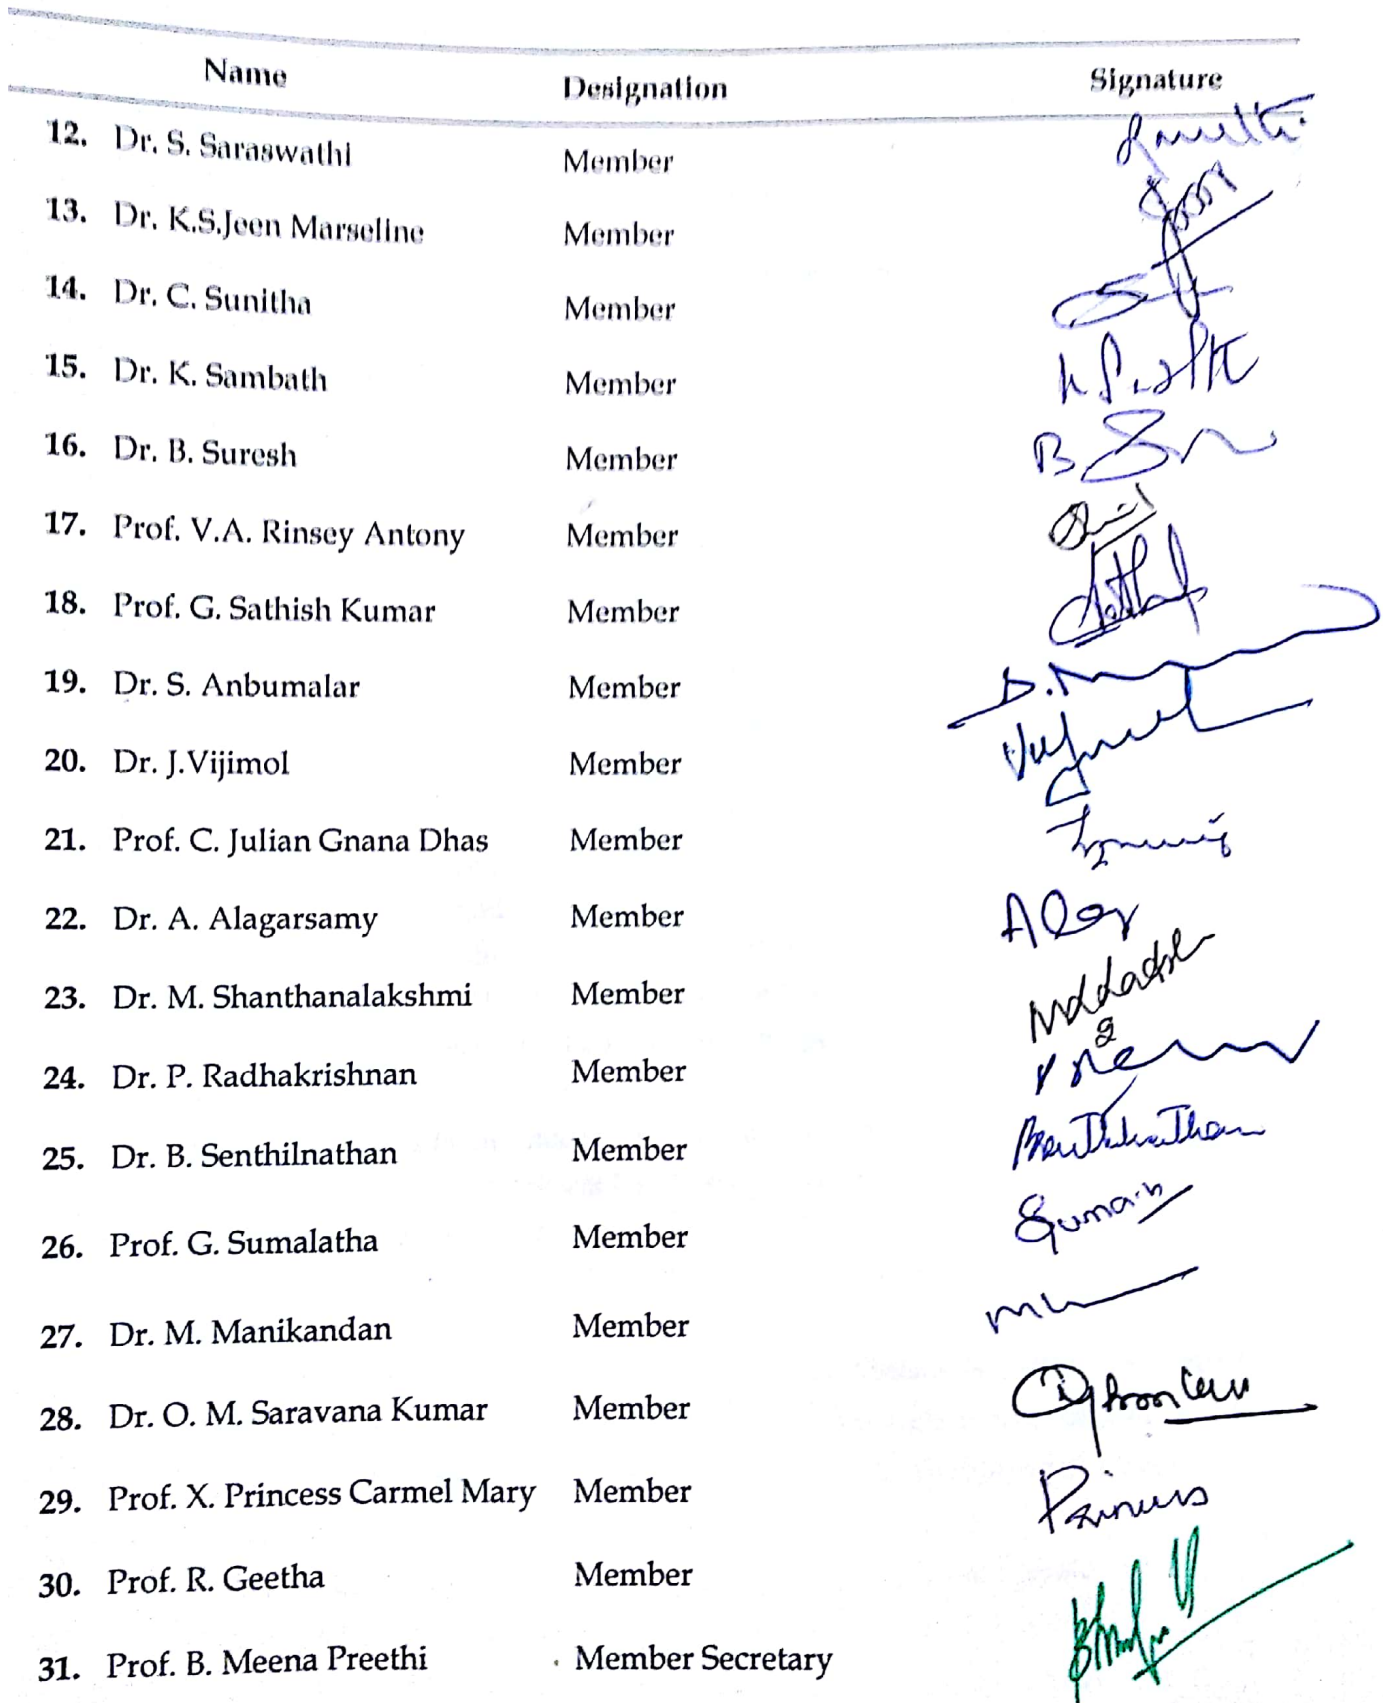 Name Designation Signature
12. Dr. S. Saraswathi Member
13. Dr. K.S.Jeen Marseline Member
14. Dr. C. Sunitha Member
15. Dr. K. Sambath Member
16. Dr. B. Suresh Member
17. Prof. V.A. Rinsey Antony Member
18. Prof. G. Sathish Kumar Member
19. Dr. S. Anbumalar Member
20. Dr. J.Vijimol Member
21. Prof. C. Julian Gnana Dhas Member
22. Dr. A. Alagarsamy Member
23. Dr. M. Shanthanalakshmi Member
24. Dr. P. Radhakrishnan Member
25. Dr. B. Senthilnathan Member
26. Prof. G. Sumalatha Member
27. Dr. M. Manikandan Member
28. Dr. O. M. Saravana Kumar Member
29. Prof. X. Princess Carmel Mary Member
30. Prof. R. Geetha Member
31. Prof. B. Meena Preethi Member Secretary